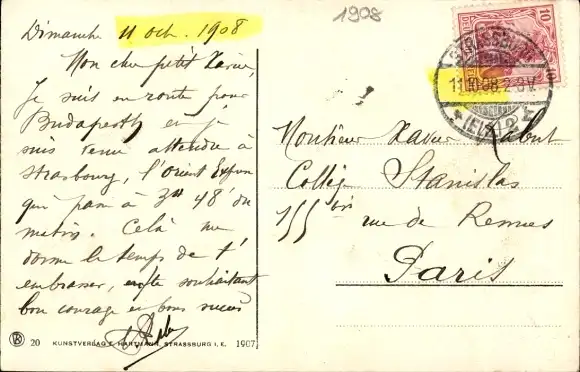 1908
Dimanche 11 oct. 1908
Mon cher petit Xavier,
Je suis en route pour
Budapesth et je
suis venu attendre à
Strasbourg, l'Orient Express
qui passe à 3h 48' du
matin. Celà me
donne le temps de t'
embrasser, en te souhaitant
bon courage et bons succès
STRASSBURG
11.10.08. 2-3V.
(ELS.) 2
10
Monsieur Xavier Rabut
Collège Stanislas
155 bis rue de Rennes
Paris
20 KUNSTVERLAG F. HARTMANN, STRASSBURG I. E. 1907